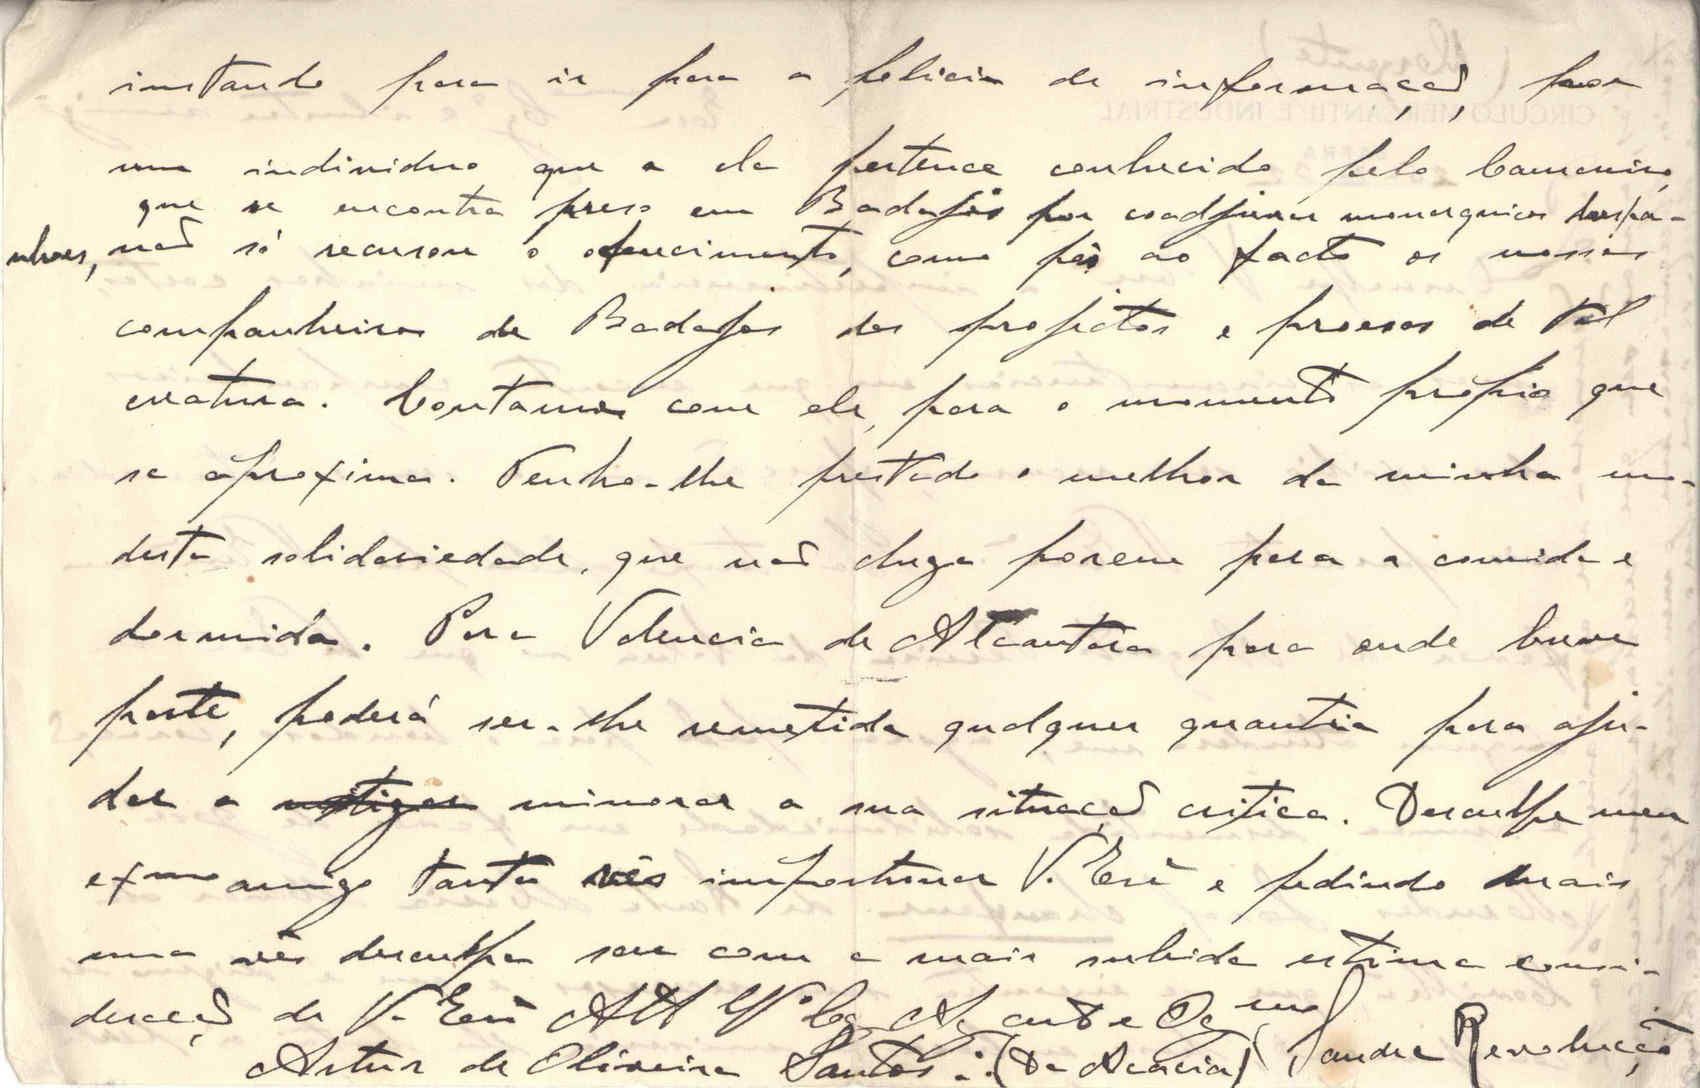 instando para ir para a policia de informação, por
um individuo que a ela pertence conhecido pelo
que se encontra preso em Badajós por coadjuvar monarquicos hespa-
nhoes, não só recusou o oferecimento, como pôs ao facto os nossos
companheiros de Badajós dos projectos e proesas de tal
creatura. Contamos com ele, para o momento próprio que
se aproxima. Tenho-lhe prestado o melhor da minha mo-
desta solidariedade, que não chega porem para a comida e
dormida. Para Valencia de Alcantara para onde breve
parte, poderá ser-lhe remetida qualquer quantia para aju-
dar a mitigar minorar a sua situação critica. Desculpe meu
exmo amigo tanta vês importunar V. Exª e pedindo mais
uma vês desculpa sou com a mais subida estima consi-
deração de V. Exª Att Vor
Artur de Oliveira Santos ∴ (Da Acacia) Saude e Revolução
CIRCULO MERCANTIL E INDUSTRIAL